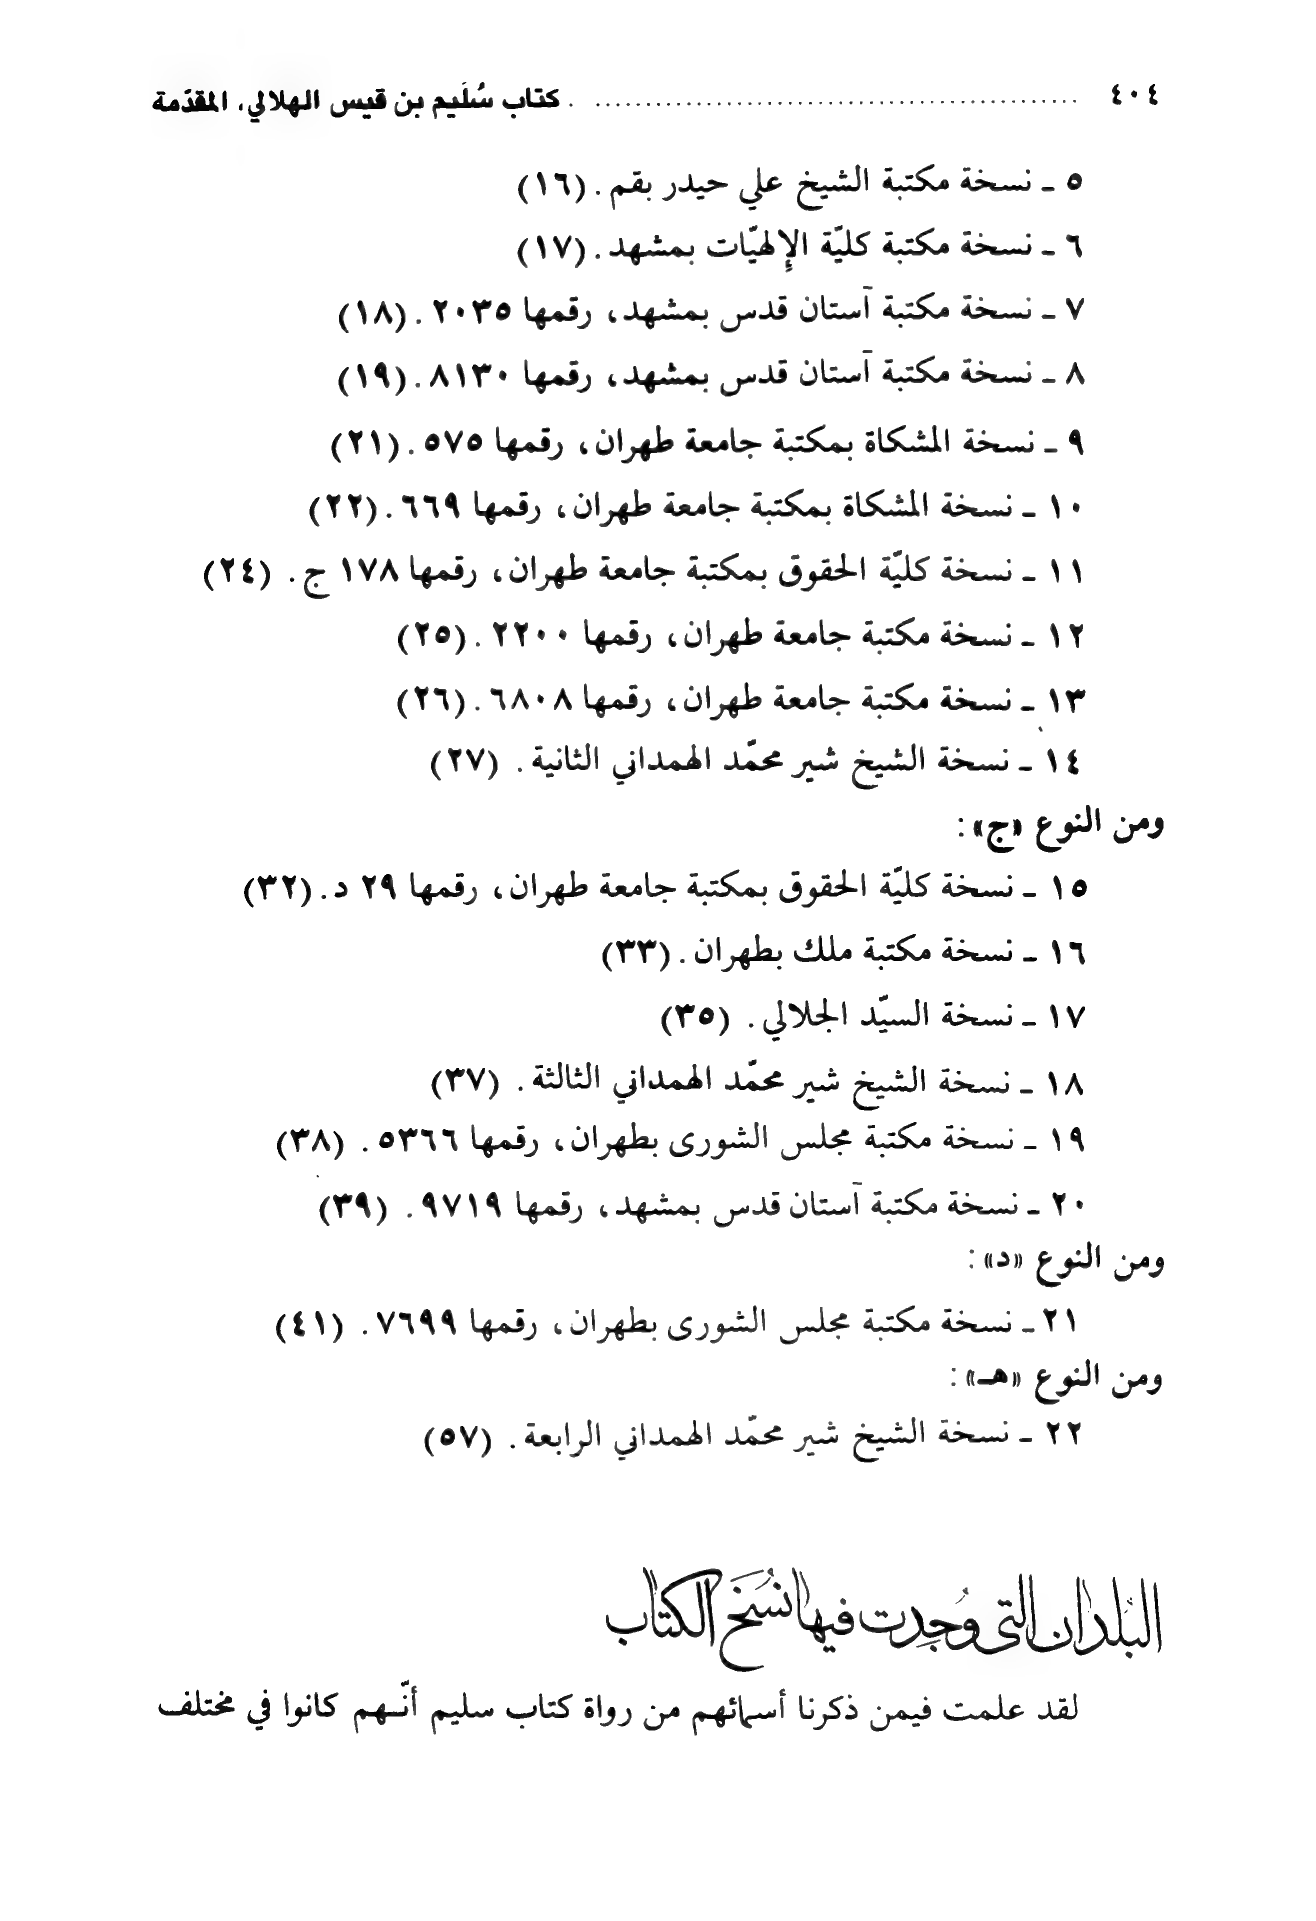 ٤٠٤ ............................................... كتاب سُلَيم بن قيس الهلالي، المقدّمة
٥ ـ نسخة مكتبة الشيخ علي حيدر بقم. (١٦)
٦ ـ نسخة مكتبة كليّة الإلهيّات بمشهد. (١٧)
٧ ـ نسخة مكتبة آستان قدس بمشهد، رقمها ٢٠٣٥. (١٨)
٨ ـ نسخة مكتبة آستان قدس بمشهد، رقمها ٨١٣٠. (١٩)
٩ ـ نسخة المشكاة بمكتبة جامعة طهران، رقمها ٥٧٥. (٢١)
١٠ ـ نسخة المشكاة بمكتبة جامعة طهران، رقمها ٦٦٩. (٢٢)
١١ ـ نسخة كليّة الحقوق بمكتبة جامعة طهران، رقمها ١٧٨ ج. (٢٤)
١٢ ـ نسخة مكتبة جامعة طهران، رقمها ٢٢٠٠. (٢٥)
١٣ ـ نسخة مكتبة جامعة طهران، رقمها ٦٨٠٨. (٢٦)
١٤ ـ نسخة الشيخ شير محمّد الهمداني الثانية. (٢٧)
ومن النوع «ج»:
١٥ ـ نسخة كليّة الحقوق بمكتبة جامعة طهران، رقمها ٢٩ د. (٣٢)
١٦ ـ نسخة مكتبة ملك بطهران. (٣٣)
١٧ ـ نسخة السيّد الجلالي. (٣٥)
١٨ ـ نسخة الشيخ شير محمّد الهمداني الثالثة. (٣٧)
١٩ ـ نسخة مكتبة مجلس الشورى بطهران، رقمها ٥٣٦٦. (٣٨)
٢٠ ـ نسخة مكتبة آستان قدس بمشهد، رقمها ٩٧١٩. (٣٩)
ومن النوع «د»:
٢١ ـ نسخة مكتبة مجلس الشورى بطهران، رقمها ٧٦٩٩. (٤١)
ومن النوع «هـ»:
٢٢ ـ نسخة الشيخ شير محمّد الهمداني الرابعة. (٥٧)
البُلدان التي وُجِدت فيها نُسَخ الكتاب
لقد علمت فيمن ذكرنا أسمائهم من رواة كتاب سليم أنّـهم كانوا في مختلف